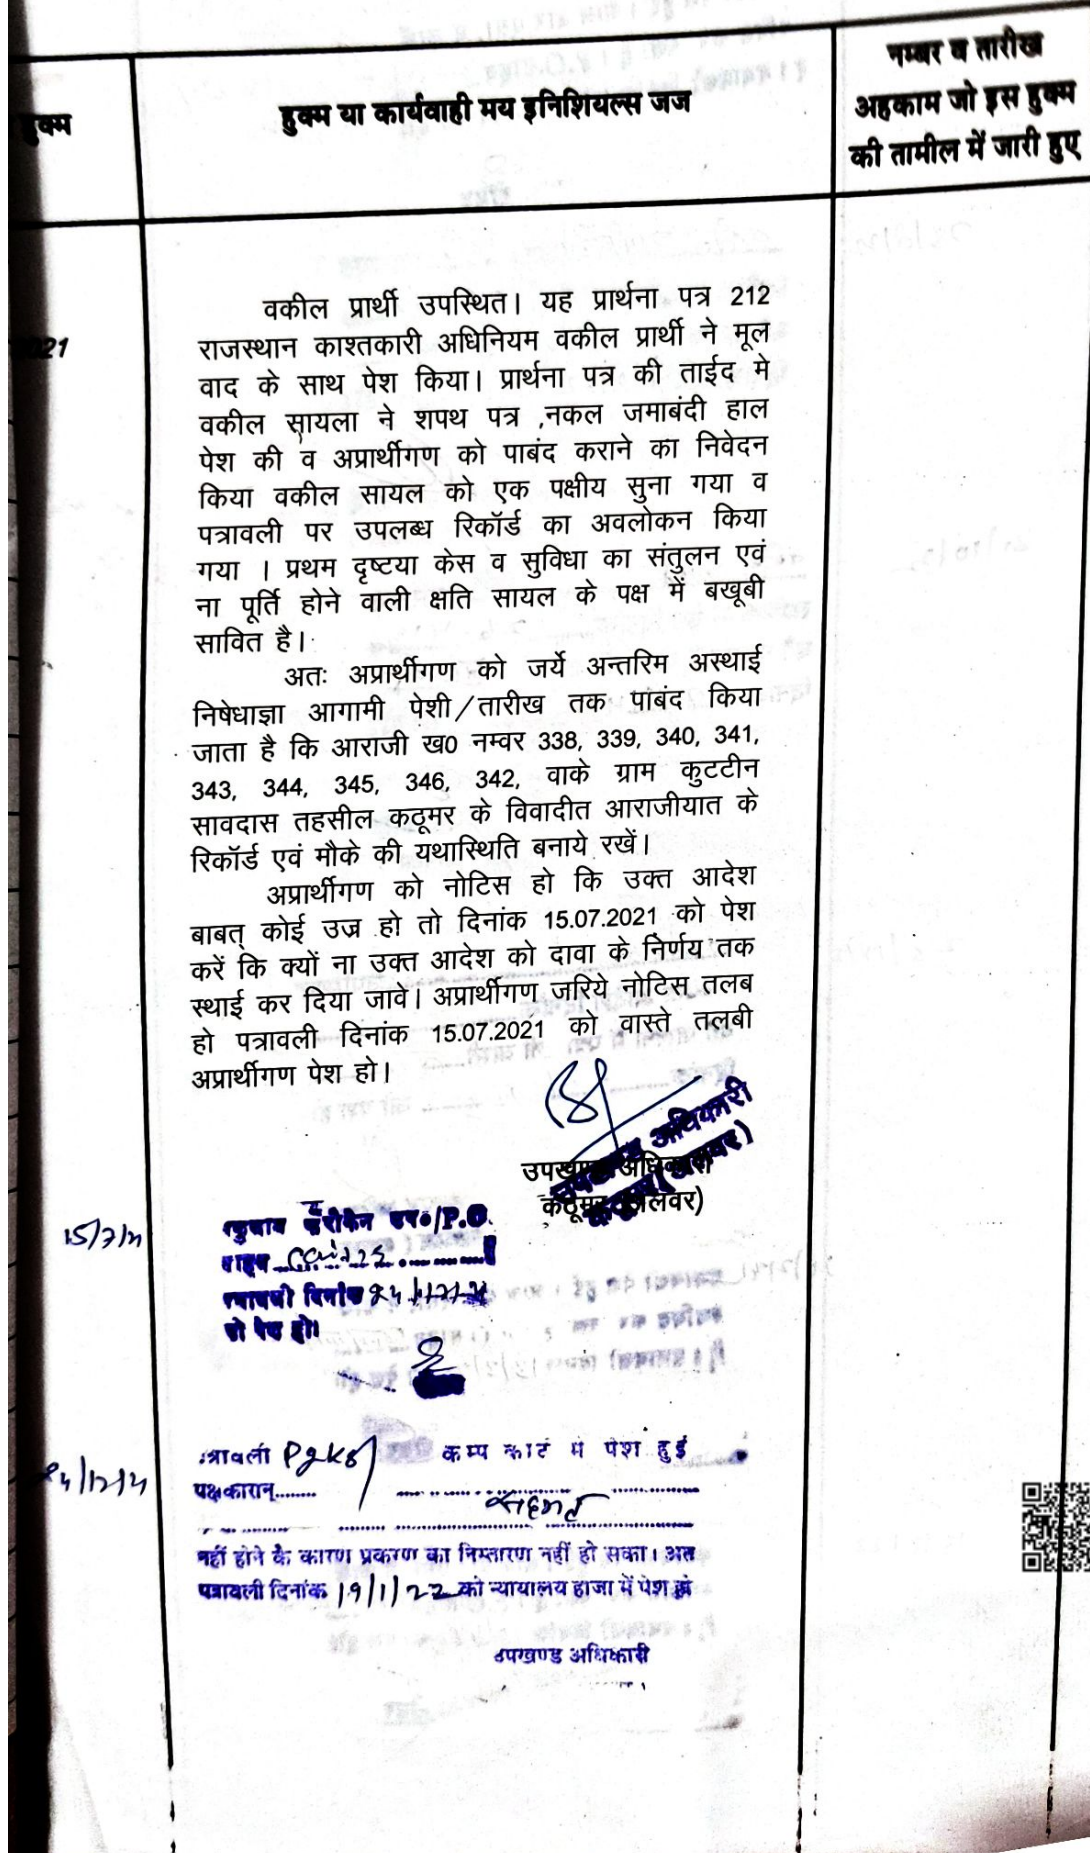 हुक्म
हुक्म या कार्यवाही मय इनिशियल्स जज
नम्बर व तारीख
अहकाम जो इस हुक्म
की तामील में जारी हुए
021
वकील प्रार्थी उपस्थित। यह प्रार्थना पत्र 212
राजस्थान काश्तकारी अधिनियम वकील प्रार्थी ने मूल
वाद के साथ पेश किया। प्रार्थना पत्र की ताईद मे
वकील सायला ने शपथ पत्र ,नकल जमाबंदी हाल
पेश की व अप्रार्थीगण को पाबंद कराने का निवेदन
किया वकील सायल को एक पक्षीय सुना गया व
पत्रावली पर उपलब्ध रिकॉर्ड का अवलोकन किया
गया । प्रथम दृष्टया केस व सुविधा का संतुलन एवं
ना पूर्ति होने वाली क्षति सायल के पक्ष में बखूबी
सावित है।
अतः अप्रार्थीगण को जर्ये अन्तरिम अस्थाई
निषेधाज्ञा आगामी पेशी/तारीख तक पाबंद किया
जाता है कि आराजी ख0 नम्वर 338, 339, 340, 341,
343, 344, 345, 346, 342, वाके ग्राम कुटटीन
सावदास तहसील कठूमर के विवादीत आराजीयात के
रिकॉर्ड एवं मौके की यथास्थिति बनाये रखें।
अप्रार्थीगण को नोटिस हो कि उक्त आदेश
बाबत् कोई उज्र हो तो दिनांक 15.07.2021 को पेश
करें कि क्यों ना उक्त आदेश को दावा के निर्णय तक
स्थाई कर दिया जावे। अप्रार्थीगण जरिये नोटिस तलब
हो पत्रावली दिनांक 15.07.2021 को वास्ते तलबी
अप्रार्थीगण पेश हो।
उपखण्ड अधिकारी
कठूमर (अलवर)
उपखण्ड अधिकारी
कठूमर (अलवर)
15/7/21
उ०/P.O.
दिनांक 24/12/21
को पेश हो।
24/12/21
पत्रावली कैम्प कोर्ट में पेश हुई
पक्षकारान्........
सहमत
नहीं होने के कारण प्रकरण का निस्तारण नहीं हो सका। अत
पत्रावली दिनांक 19/1/22 को न्यायालय हाजा में पेश हो
उपखण्ड अधिकारी